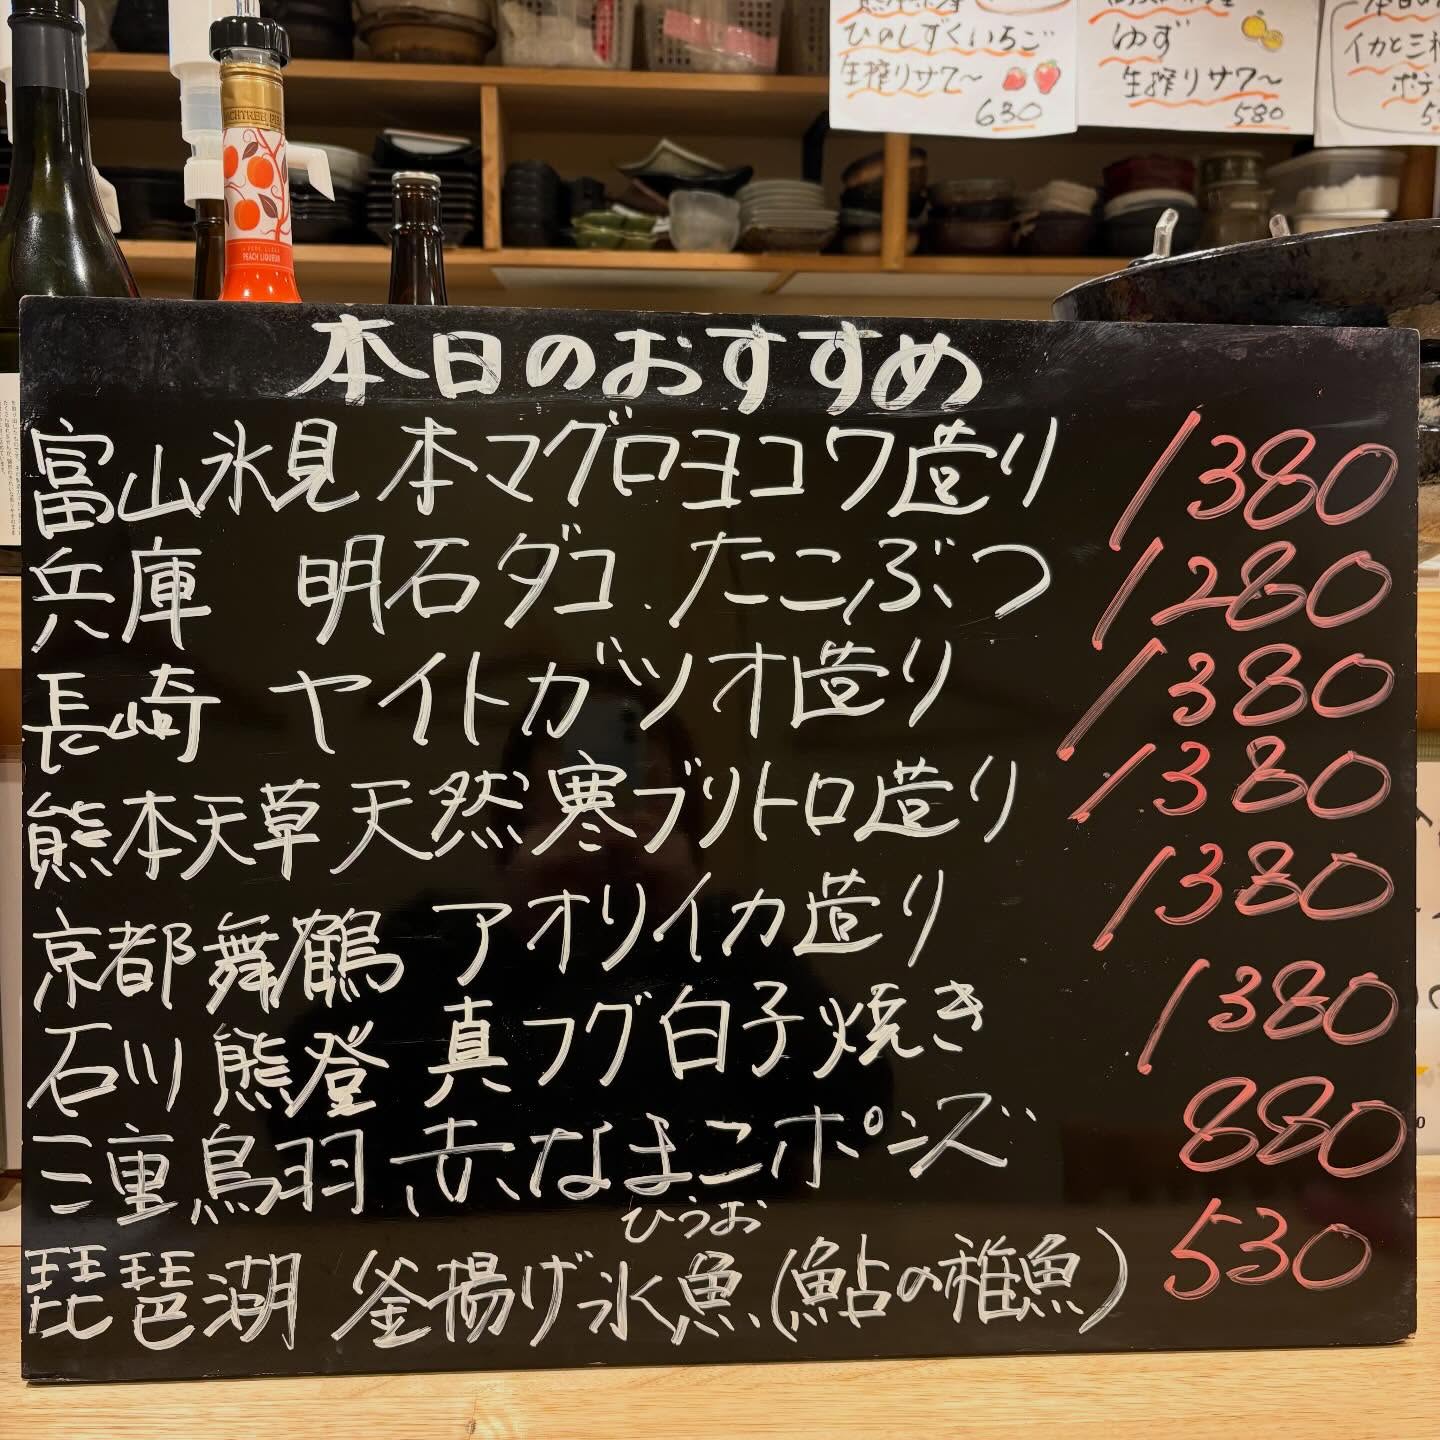 ひのしずくいちご
生搾りサワ～
630
ゆず
生搾りサワ～
580
本日の
イカと三種
ポテ
PEACH LIQUEUR
本日のおすすめ
富山氷見 本マグロヨコワ造り 1380
兵庫 明石ダコ たこぶつ 1280
長崎 ヤイトガツオ造り 1380
熊本天草 天然寒ブリトロ造り 1380
京都 舞鶴 アオリイカ造り 1380
石川 熊登 真フグ白子焼き 1380
三重鳥羽 赤なまこポンズ 880
ひうお
琵琶湖 釜揚げ氷魚(鮎の稚魚) 530